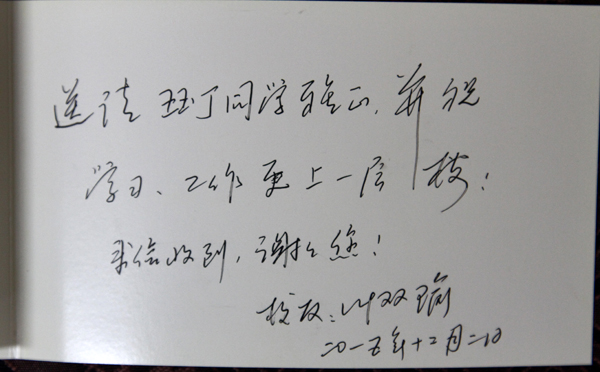 送请玉丁同学雅正，并祝
学习、工作更上一层楼！
来信收到，谢谢您！
校友：叶双瑜
二〇一五年十二月二日